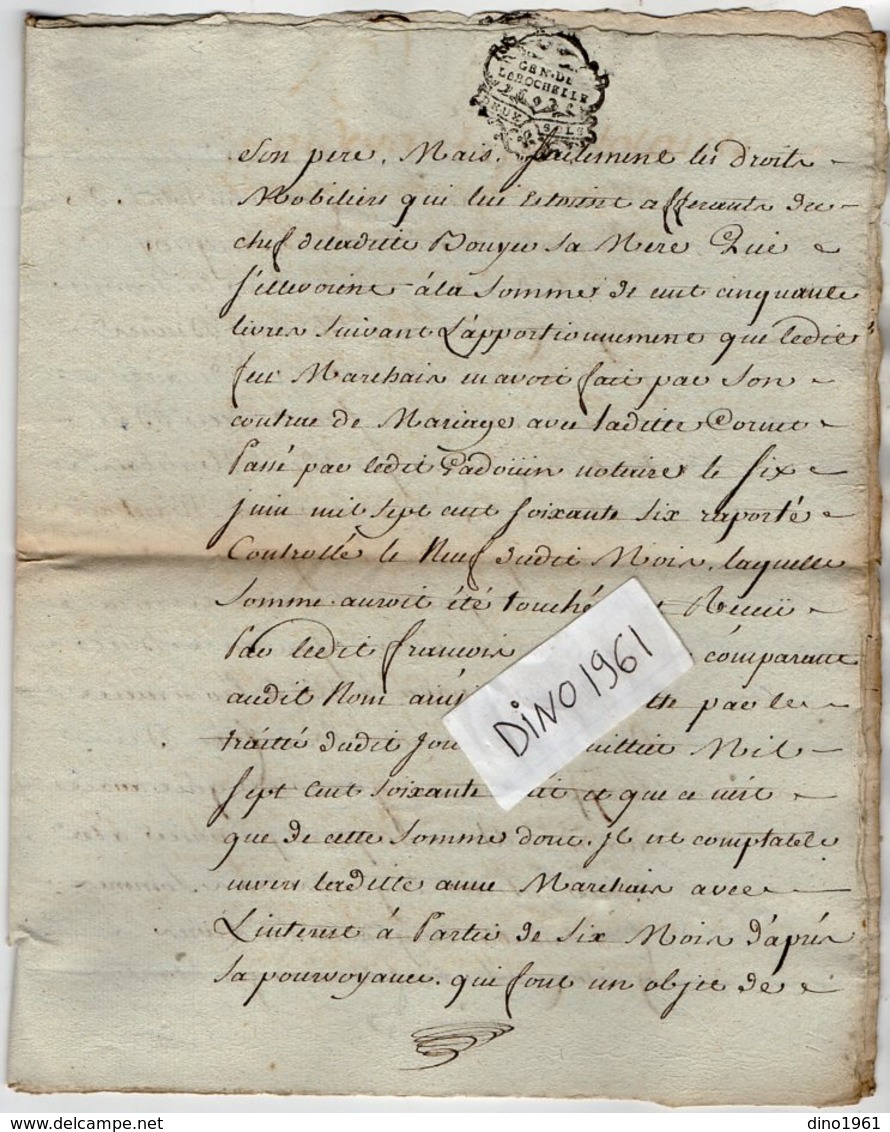 GEN. DE
LA ROCHELLE
DEUX SOLS
Son pere, Mais. seulement les droits
Mobiliers qui lui Estoient afferants du
chef de laditte Bouyer sa Mere Qui
s'ellevoient à la Somme de cent cinquante
livres suivant L'apportionnement que ledit
feu Marchais en avoit fait par Son
contrat de Mariage avec laditte Cornet
Passé par ledit Padoüin notaire le six
juin mil sept cent soixante six raporté
Controllé le Neuf dudit Mois, laquelle
Somme auroit été touchée Recuü
Par ledit francois comparant
audit Nom par le
traitté dudit Mil
sept cent soixante et que ce n'est
que de cette Somme dont. Il est comptable
envers laditte anne Marchais avec
L'interest à Partir de six Mois d'aprés
sa pourvoyance. qui font un objet de
DINO 1961
dino1961